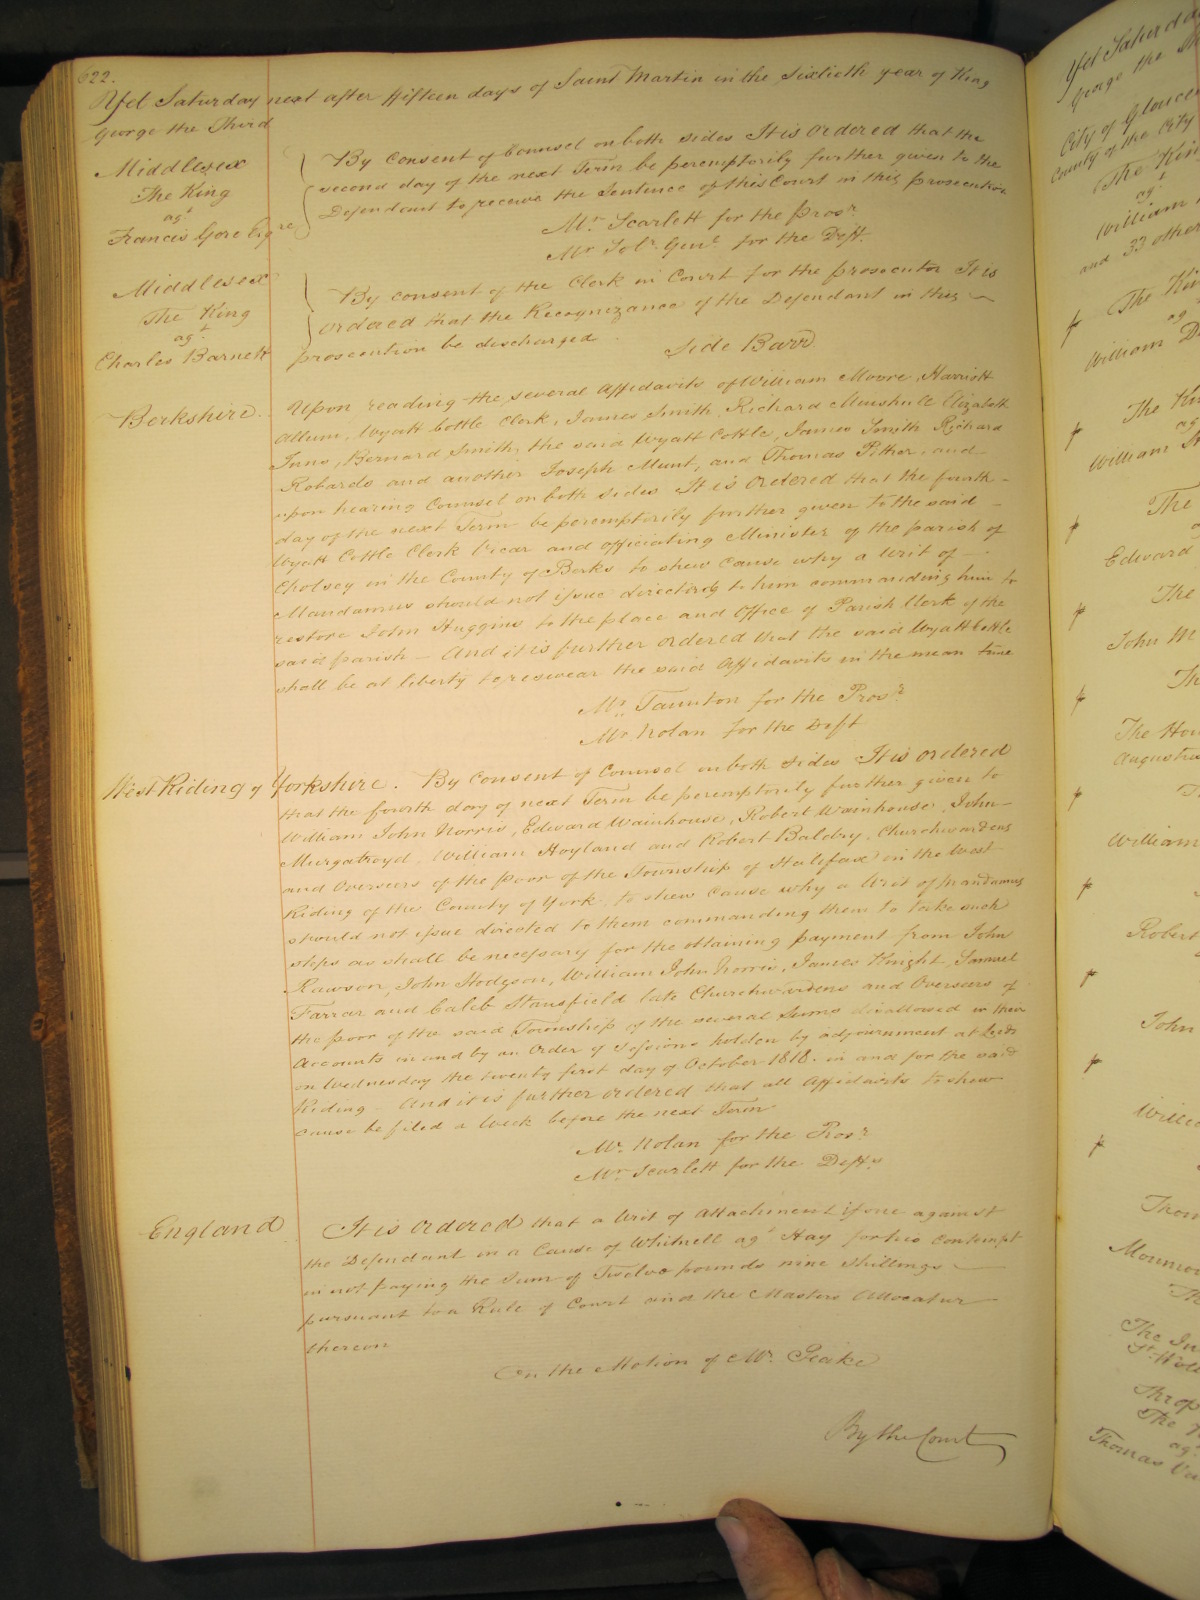 622.
Yet Saturday next after fifteen days of Saint Martin in the Sixtieth year of King
George the Third
Middlesex
The King
agt
Francis Gore Esqre
By Consent of Counsel on both sides It is ordered that the
second day of the next Term be peremptorily further given to the
Defendant to receive the Sentence of this Court in this prosecution
Mr Scarlett for the Prosr
Mr Solr Genl for the Deft.
Middlesex
The King
agt
Charles Barnett
By consent of the Clerk in Court for the prosecutor It is
ordered that the Recognizance of the Defendant in this
prosecution be discharged
Side Barr
Berkshire.
Upon reading the several Affidavits of William Moore, Harriott
Allum, Wyatt Cottle Clerk, James Smith, Richard Munshull Elizabeth
Inns, Bernard Smith, the said Wyatt Cottle, James Smith Richard
Robards and another Joseph Munt, and Thomas Pither, and
upon hearing Counsel on both sides It is Ordered that the fourth
day of the next Term be peremptorily further given to the said
Wyatt Cottle Clerk Vicar and officiating Minister of the parish of
Cholsey in the County of Berks to shew cause why a Writ of
Mandamus should not issue directed to him commanding him to
restore John Huggins to the place and Office of Parish Clerk of the
said parish - And it is further ordered that the said Wyatt Cottle
shall be at liberty to reswear the said Affidavits in the mean time
Mr Taunton for the Prosr
Mr Nolan for the Deft
West Riding of Yorkshire. By Consent of Counsel on both sides It is ordered
that the fourth day of next Term be peremptorily further given to
William John Norris, Edward Wainhouse, Robert Wainhouse, John
Murgatroyd, William Hoyland and Robert Baldry, Churchwardens
and Overseers of the Poor of the Township of Halifax in the West
Riding of the County of York to shew cause why a Writ of Mandamus
should not issue directed to them commanding them to take such
steps as shall be necessary for the obtaining payment from John
Rawson, John Hodgson, William John Norris, James Knight, Samuel
Farrar and Caleb Stansfield late Churchwardens and Overseers of
the poor of the said Township of the several Sums disallowed in their
Accounts in and by an Order of Sessions holden by adjournment at Leeds
on Wednesday the twenty first day of October 1818. in and for the said
Riding - And it is further ordered that all Affidavits to shew
cause be filed a Week before the next Term
Mr Nolan for the Prosr
Mr Scarlett for the Defts
England
It is ordered that a Writ of Attachment issue against
the Defendant in a Cause of Whitnell agt Hay for his Contempt
in not paying the Sum of Twelve pounds nine Shillings
pursuant to a Rule of Court and the Masters Allocatur
thereon
On the Motion of Mr Peake
By the Court
Yet Saturday
George the
City of Glouces
County of the City
The Kin
agt
William
and 33 other
The Kin
ag
William D
The Kin
ag
William
The
Edward
The
John M
Th
The Hon
Augustus
William
Robert
John
Thom
The In
The
ag
Thomas